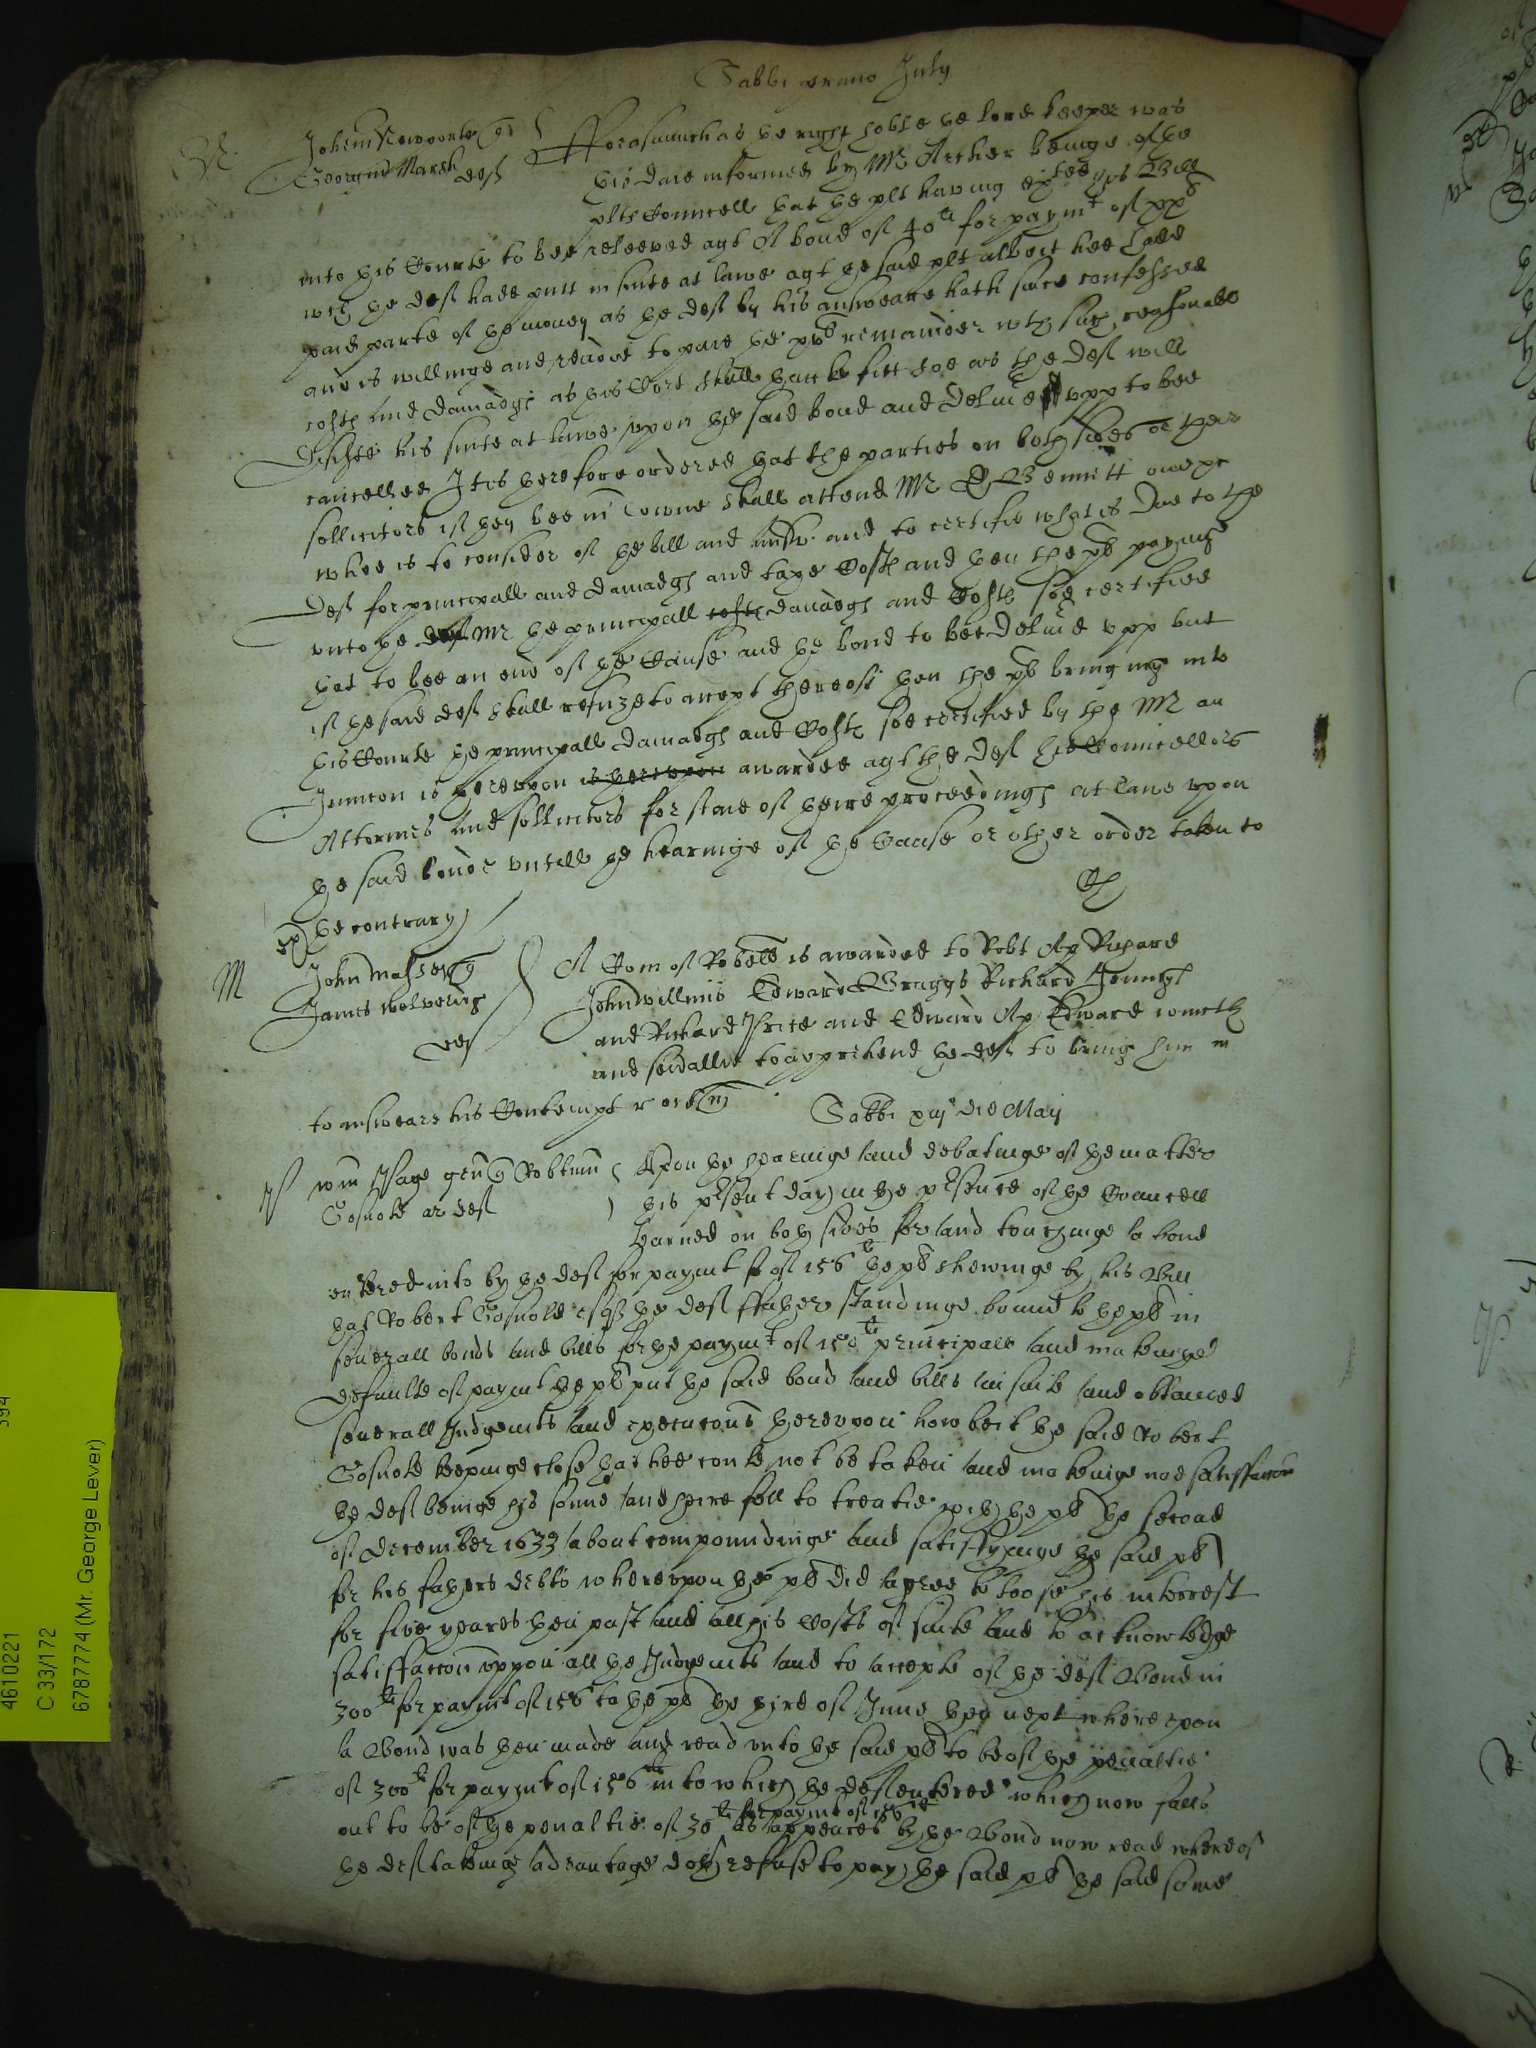 Sabbi primo July
N Johem Newporte q
Georgiu Marsh def
Fforasmuch as ye right hoble ye lord keeper was
this daie informed by Mr Archer beinge of ye
plts Councell yat ye plt having exted his Bill
into this Courte to bee releeved agt A bond of 40li for paymt of xxli
wch ye def hade putt in suite at lawe agt ye said plt albeit hee hade
paid parte of ye money as ye def by his answeare hath since confessed
and is willinge and readie to paie ye remainder wth such reasonable
costs and damadgs as this Cort shall thincke fitt soe as the def will
his suite at lawe upon ye said bond and deliver upp to bee
cancelled It is therefore ordered yat the parties on both sides or their
sollicitors if they bee in Towne shall attend Mr Bennett
whoe is to consider of ye bill and answ and to certifie what is due to the
def for principall and damadgs and taxe Costs and then the plt payinge
unto ye def Mr ye principall costs damadgs and Costs soe certified
yat to bee an end of ye Cause and ye bond to bee delivered upp but
if ye said def shall refuze to accept thereof then the plt bringing into
this Courte ye principall damadgs and Costs soe certified by the Mr an
Iniunccon is thereupon is thereupon awarded agt the def his Councellors
Attorneis and sollicitors for staie of theire proceedings at lawe upon
ye said bonde untill ye hearinge of ye Cause or other order taken to
ye contrary
ex
M John Massey q
James wolverig
def
A Com of Rebell is awarded to Robt Ap Richard
John willms Edward Bragge Richard Jenings
and Richard Price and Edward Ap Edward iointly
and severallie to apprehend ye def to bring him in
to answeare his Contempt
Sabbi die Maij
wm Page gen q Robtum
Gosnold ar def
Upon ye hearinge and debatinge of ye matter
this present day in ye presence of ye Councell
learned on both sides for and touchinge a bond
entered into by ye def for paymt of 156li ye plt shewinge by his Bill
yat Robert Gosnold esqr ye def ffather standinge bound to ye plt in
severall bonds and bills for ye paymt of 150li principall and makeinge
defaulte of paymt ye plt put ye said bond and bills in suite and obtained
severall Judgemts and execucons thereupon howbeit ye said Robert
Gosnold keepinge close yat hee could not be taken and makeinge noe satisfaccon
ye def beinge his sonne and heire fell to treatie with ye plt ye second
of december 1633 about compoundinge and satisfyinge ye said plt
for his fathers debts whereupon ye plt did agree to loose his interrest
for five yeares then past and all his Costs of suite and to acknowledge
satisfaccon uppon all ye Judgemts and to accepte of ye def Bond in
300li for paymt of 156 to ye plt ye third of June then next whereupon
a Bond was then made and read unto ye said plt to be of ye penaltie
of 300li for paymt of 156li into which ye def entered which now falls
for paymt of 156li
out to be of ye penaltie of 30li as appeares by ye Bond now read whereof
ye def takeinge advantage doth refuse to pay ye said plt ye said some
4610221
C 33/172
6787774 (Mr. George Lever)